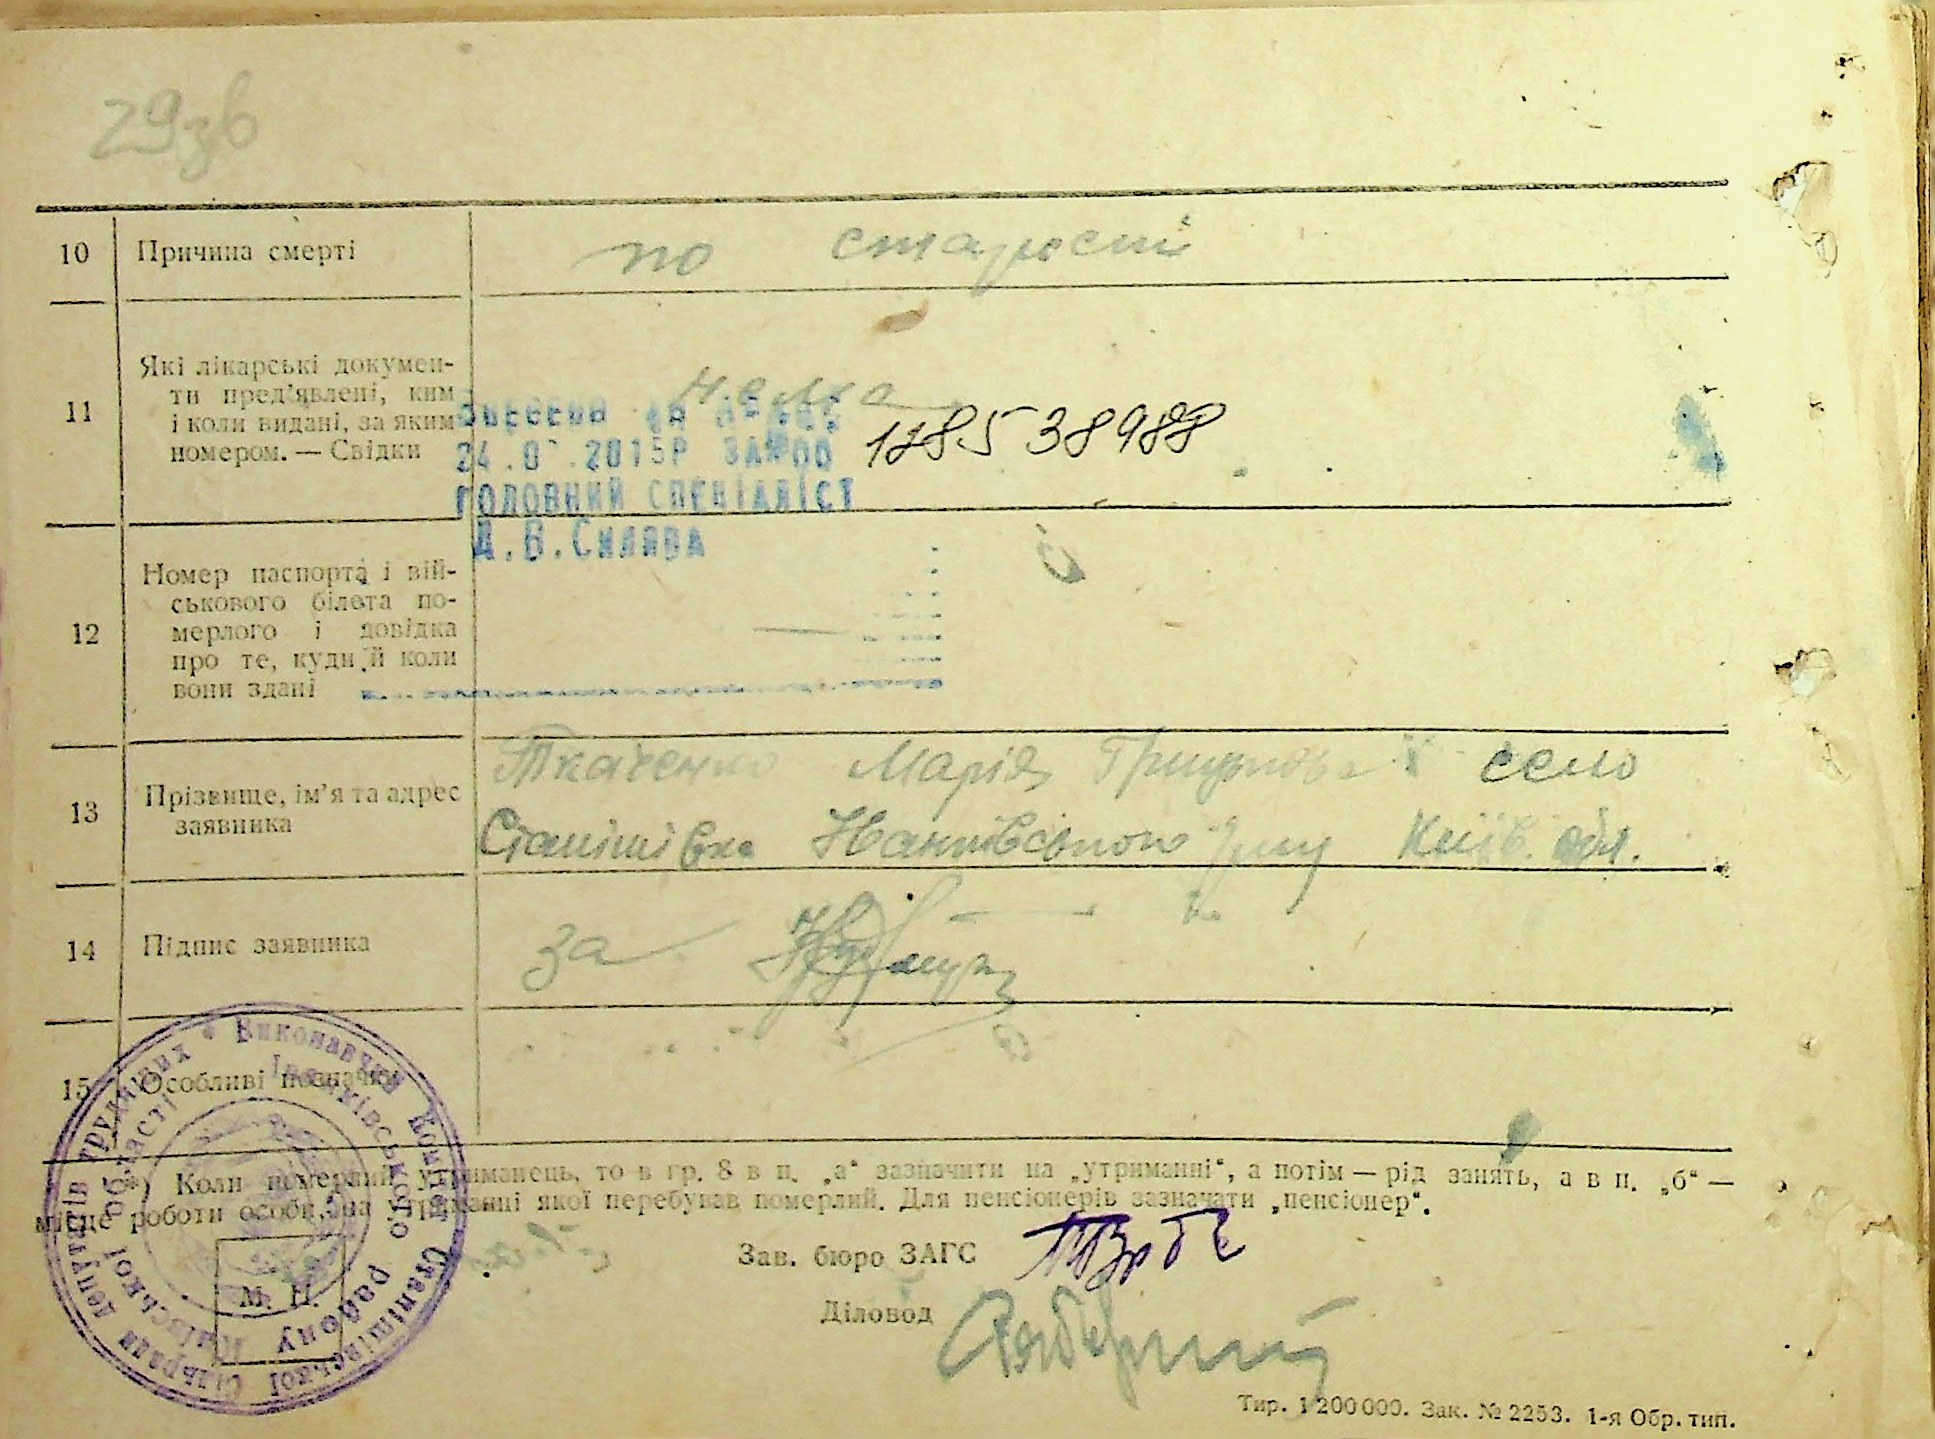 29зв
10 Причина смерті по старості
11 Які лікарські докумен-
ти пред'явлені, ким
і коли видані, за яким
номером. — Свідки
нема
1185 38988
24.0 .2015Р ЗА №00
ГОЛОВНИЙ СПЕЦІАЛІСТ
12 Номер паспорта і вій-
ськового білета по-
мерлого і довідка
про те, куди й коли
вони здані
—
13 Прізвище, ім'я та адрес
заявника
Ткаченко Марія село
Станішівка Київ. обл.
14 Підпис заявника за
15 Особливі позначки
*) Коли померлий утриманець, то в гр. 8 в п. „а“ зазначити на „утриманні“, а потім — рід занять, а в п. „б“ —
місце роботи особи, на утриманні якої перебував померлий. Для пенсіонерів зазначати „пенсіонер“.
Зав. бюро ЗАГС
Діловод
М. П.
Виконавчий Комітет Станішівської сільради депутатів трудящих
Іванківського району Київської області
Тир. 1 200 000. Зак. № 2253. 1-я Обр. тип.